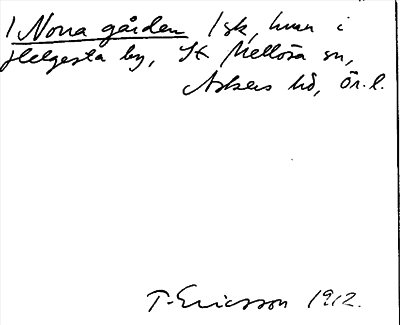 1 Norra gården 1 sk, hmn i
Helgesta by, St Mellösa sn,
Askers hd, Ör. l.
T. Ericsson 1912.